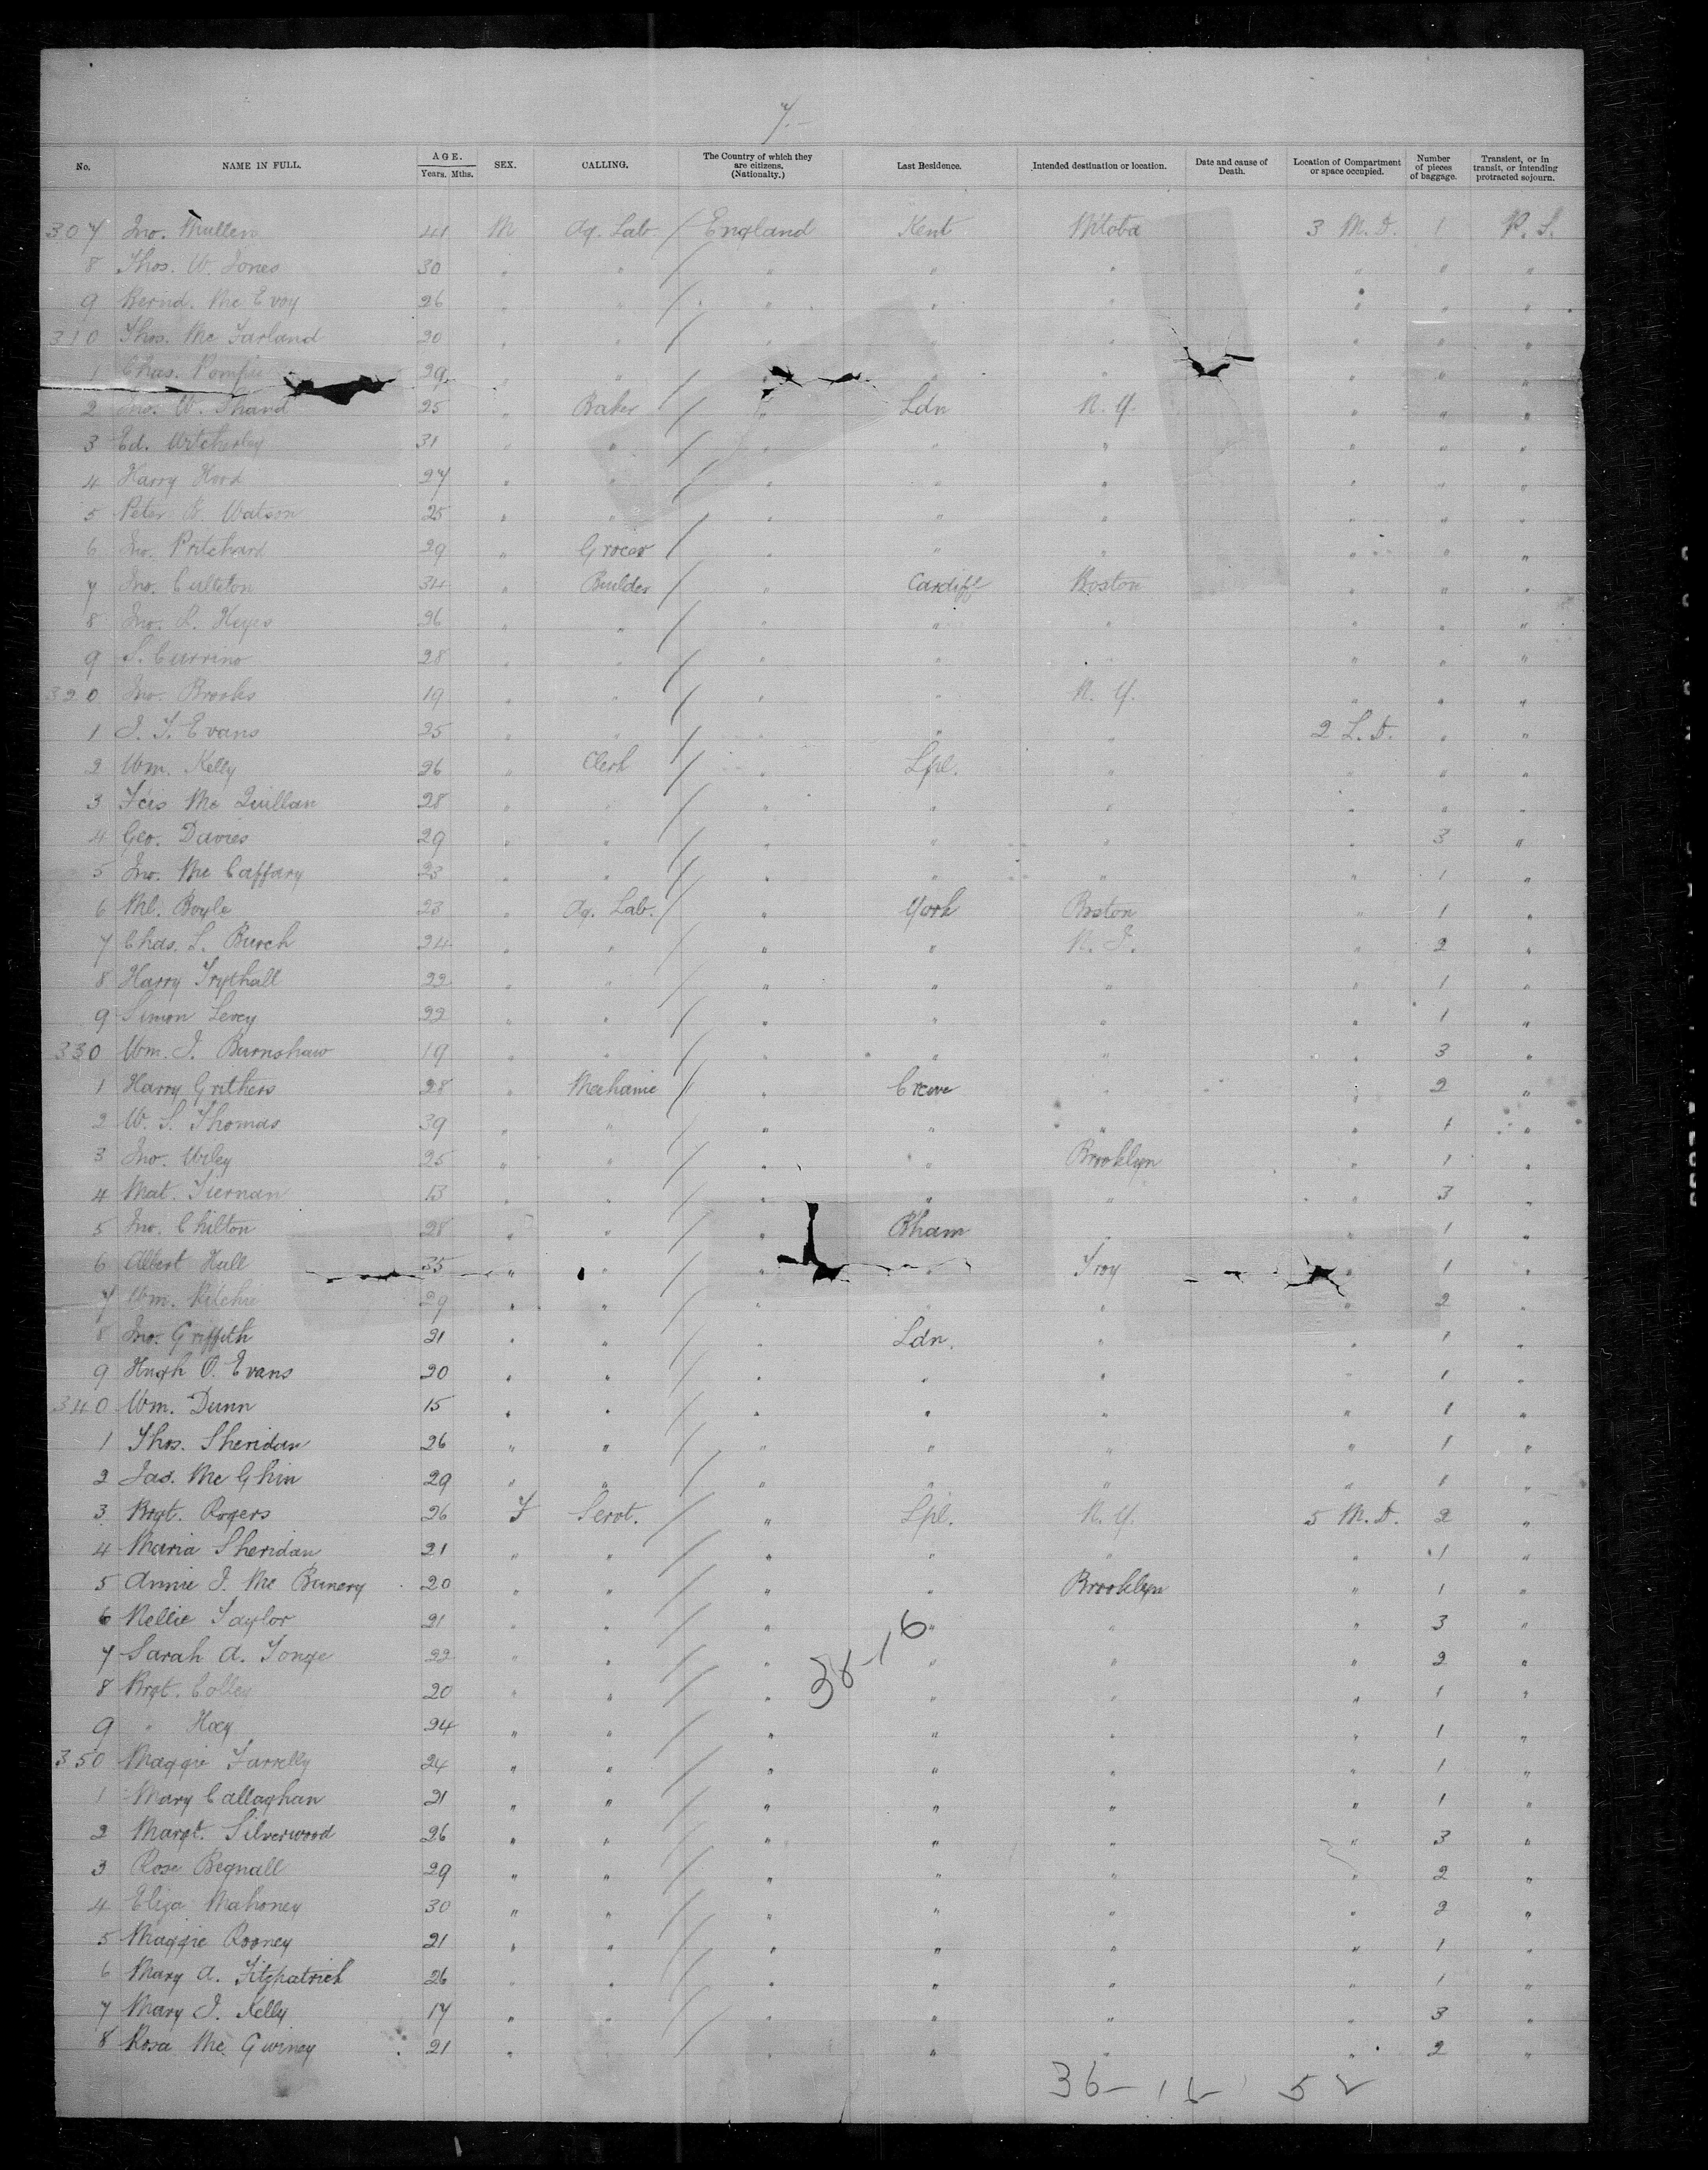 7.-
No. NAME IN FULL. AGE. Years. Mths. SEX. CALLING. The Country of which they are citizens. (Nationalty.) Last Residence. Intended destination or location. Date and cause of Death. Location of Compartment or space occupied. Number of pieces of baggage. Transient, or in transit, or intending protracted sojourn.
307 Jno. Mullen 41 M Ag. Lab. / England Kent M'toba 3 M.D. 1 P.S.
8 Thos. W. Jones 30 " " / " " " " " "
9 Bernd. Mc Evoy 26 " " / " " " " " "
310 Thos. Mc Farland 20 " " / " " " " " "
1 Chas. 29 " " / " " " " " "
2 Jno. W. Shand 25 " Baker / " Ldn N.Y. " " "
3 Ed. Witcherley 31 " " / " " " " " "
4 Harry Hord 27 " " / " " " " " "
5 Peter Watson 25 " " / " " " " " "
6 Jno. Pritchard 29 " Grocer / " " " " " "
7 Jno. Culliton 34 " Builder / " Cardiff Boston " " "
8 Jno. L. Keyes 26 " " / " " " " " "
9 S. Currino 28 " " / " " " " " "
320 Jno. Brooks 19 " " / " " N.Y. " " "
1 J. T. Evans 25 " " / " " " 2 L.D. " "
2 Wm. Kelly 26 " Clerk / " Lpl. " " " "
3 Fcis Mc Quillan 28 " " / " " " " " "
4 Geo. Davies 29 " " / " " " " 3 "
5 Jno. Mc Caffary 23 " " / " " " " 1 "
6 Ml. Boyle 23 " Ag. Lab. / " York Boston " 1 "
7 Chas. L. Burch 24 " " / " " N.J. " 2 "
8 Harry Trythall 22 " " / " " " " 1 "
9 Simon Levey 22 " " / " " " " 1 "
330 Wm. J. Burnshaw 19 " " / " " " " 3 "
1 Harry Grithers 28 " Mechanic / " Crewe " " 2 "
2 W. S. Thomas 39 " " / " " " " 1 "
3 Jno. Urley 25 " " / " " Brooklyn " 1 "
4 Mat. Tiernan 13 " " / " " " " 3 "
5 Jno. Chilton 28 " " / " B'ham " " 1 "
6 Albert Hall 35 " " / " " Troy " 1 "
7 Wm. Ritchie 29 " " / " " " " 2 "
8 Jno. Griffith 21 " " / " Ldn. " " 1 "
9 Hugh O. Evans 20 " " / " " " " 1 "
340 Wm. Dunn 15 " " / " " " " 1 "
1 Thos. Sheridan 26 " " / " " " " 1 "
2 Jas. Mc Ghin 29 " " / " " " " 1 "
3 Brgt. Rogers 26 F Servt. / " Lpl. N.Y. 5 M.D. 2 "
4 Maria Sheridan 21 " " / " " " " 1 "
5 Annie J. Mc Banery 20 " " / " " Brooklyn " 1 "
6 Nellie Taylor 21 " " / " " " " 3 "
7 Sarah A. Tonge 22 " " / " " " " 2 "
36-16
8 Brgt. Colley 20 " " / " " " " 1 "
9 " Hoey 24 " " / " " " " 1 "
350 Maggie Farrelly 24 " " / " " " " 1 "
1 Mary Callaghan 21 " " / " " " " 1 "
2 Margt. Silverwood 26 " " / " " " " 3 "
3 Rose Begnall 29 " " / " " " " 2 "
4 Eliza Mahoney 30 " " / " " " " 2 "
5 Maggie Rooney 21 " " / " " " " 1 "
6 Mary A. Fitzpatrick 26 " " / " " " " 1 "
7 Mary J. Kelly 17 " " / " " " " 3 "
8 Rosa Mc Gwiney 21 " " / " " " " 2 "
36-16 52